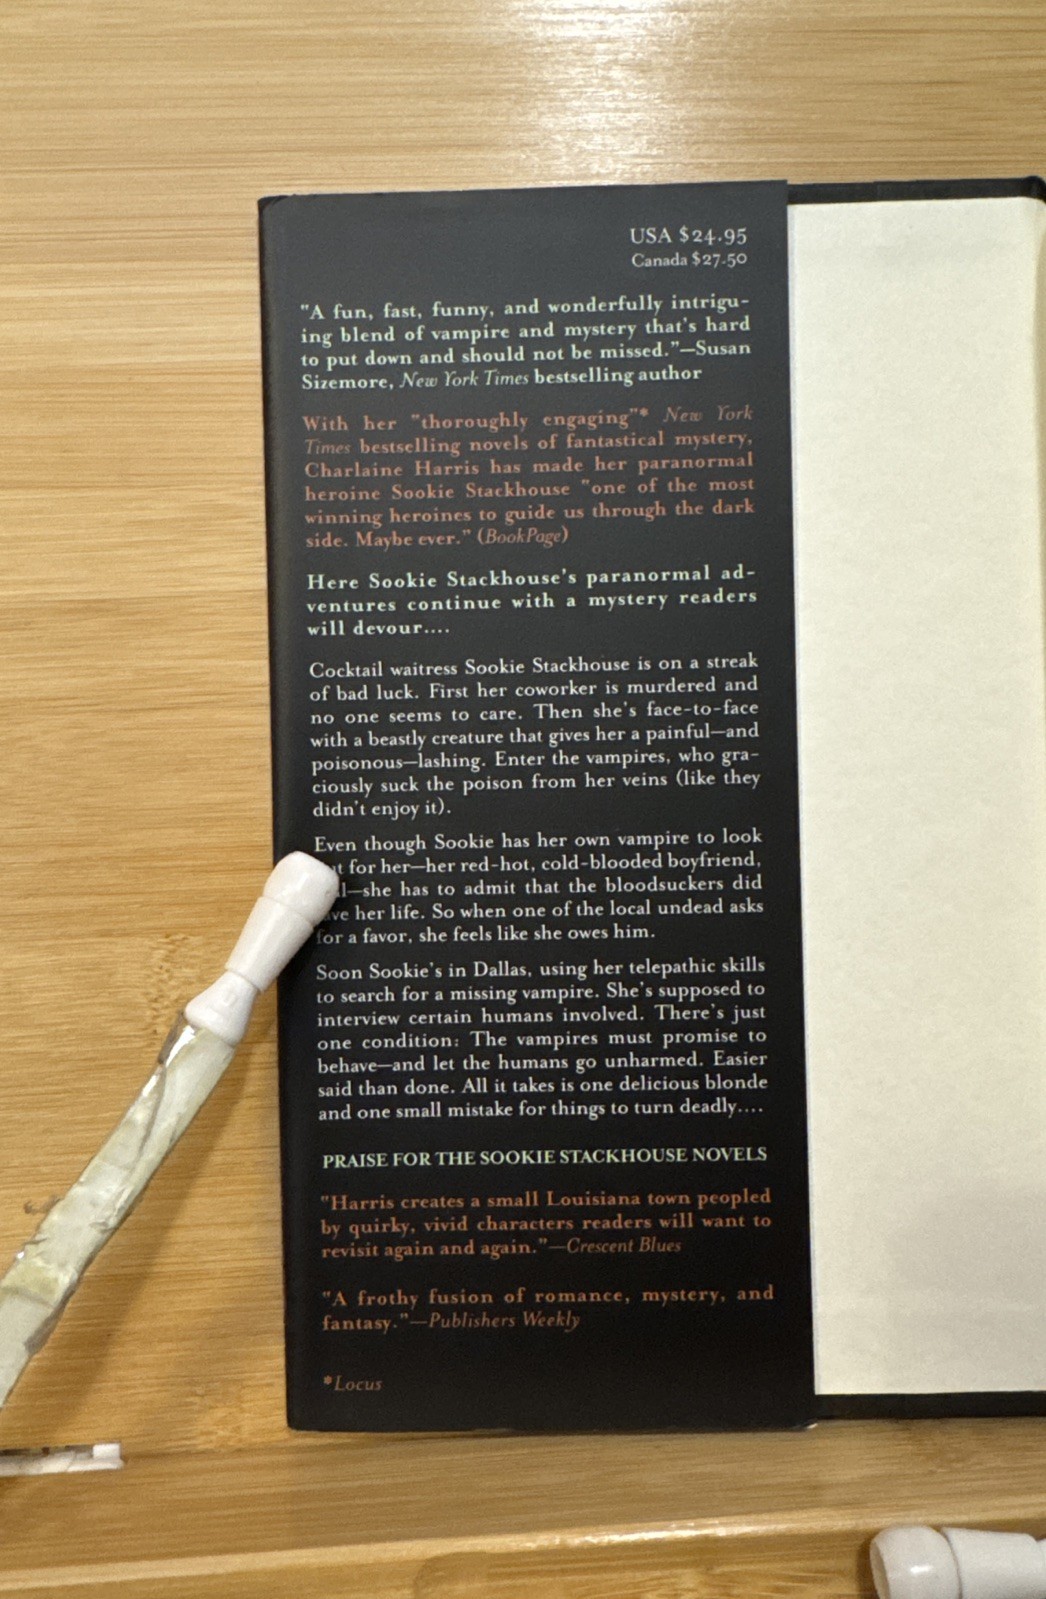 USA $24.95
Canada $27.50
"A fun, fast, funny, and wonderfully intrigu-
ing blend of vampire and mystery that's hard
to put down and should not be missed."—Susan
Sizemore, New York Times bestselling author
With her "thoroughly engaging"* New York
Times bestselling novels of fantastical mystery,
Charlaine Harris has made her paranormal
heroine Sookie Stackhouse "one of the most
winning heroines to guide us through the dark
side. Maybe ever." (BookPage)
Here Sookie Stackhouse's paranormal ad-
ventures continue with a mystery readers
will devour....
Cocktail waitress Sookie Stackhouse is on a streak
of bad luck. First her coworker is murdered and
no one seems to care. Then she's face-to-face
with a beastly creature that gives her a painful—and
poisonous—lashing. Enter the vampires, who gra-
ciously suck the poison from her veins (like they
didn't enjoy it).
Even though Sookie has her own vampire to look
for her—her red-hot, cold-blooded boyfriend,
—she has to admit that the bloodsuckers did
her life. So when one of the local undead asks
for a favor, she feels like she owes him.
Soon Sookie's in Dallas, using her telepathic skills
to search for a missing vampire. She's supposed to
interview certain humans involved. There's just
one condition: The vampires must promise to
behave—and let the humans go unharmed. Easier
said than done. All it takes is one delicious blonde
and one small mistake for things to turn deadly....
PRAISE FOR THE SOOKIE STACKHOUSE NOVELS
"Harris creates a small Louisiana town peopled
by quirky, vivid characters readers will want to
revisit again and again."—Crescent Blues
"A frothy fusion of romance, mystery, and
fantasy."—Publishers Weekly
*Locus